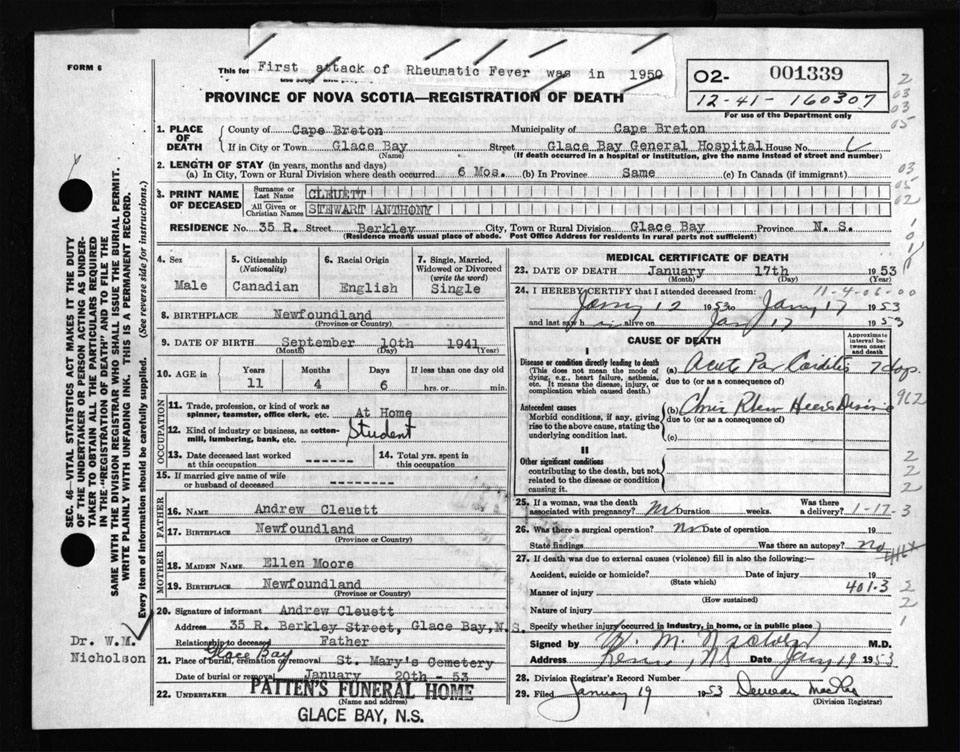 FORM 6
This for First attack of Rheumatic Fever was in 1950
O2- 001339
12-41-160307
For use of the Department only
PROVINCE OF NOVA SCOTIA—REGISTRATION OF DEATH
1. PLACE OF DEATH
County of Cape Breton Municipality of Cape Breton
If in City or Town Glace Bay Street Glace Bay General Hospital House No.
(Name) (If death occurred in a hospital or institution, give the name instead of street and number)
2. LENGTH OF STAY (in years, months and days)
(a) In City, Town or Rural Division where death occurred 6 Mos. (b) In Province Same (c) In Canada (if immigrant)
3. PRINT NAME OF DECEASED
Surname or Last Name CLEUETT
All Given or Christian Names STEWART ANTHONY
RESIDENCE No. 35 R. Street Berkley City, Town or Rural Division Glace Bay Province N. S.
(Residence means usual place of abode. Post Office Address for residents in rural parts not sufficient)
4. Sex
Male
5. Citizenship (Nationality)
Canadian
6. Racial Origin
English
7. Single, Married, Widowed or Divorced (write the word)
Single
8. BIRTHPLACE Newfoundland
(Province or Country)
9. DATE OF BIRTH September 10th 1941
(Month) (Day) (Year)
10. AGE in
Years Months Days If less than one day old
11 4 6 hrs. or min.
OCCUPATION
11. Trade, profession, or kind of work as spinner, teamster, office clerk, etc. At Home
12. Kind of industry or business, as cotton-mill, lumbering, bank, etc. Student
13. Date deceased last worked at this occupation -------
14. Total yrs. spent in this occupation -------
15. If married give name of wife or husband of deceased ---------
FATHER
16. NAME Andrew Cleuett
17. BIRTHPLACE Newfoundland
(Province or Country)
MOTHER
18. MAIDEN NAME Ellen Moore
19. BIRTHPLACE Newfoundland
(Province or Country)
20. Signature of informant Andrew Cleuett
Address 35 R. Berkley Street, Glace Bay, N.S.
Relationship to deceased Father
Glace Bay
21. Place of burial, cremation or removal St. Mary's Cemetery
Date of burial or removal January 20th - 53
22. UNDERTAKER PATTEN'S FUNERAL HOME
(Name and address)
GLACE BAY, N.S.
MEDICAL CERTIFICATE OF DEATH
23. DATE OF DEATH January 17th 1953
(Month) (Day)
11-4-06-00
24. I HEREBY CERTIFY that I attended deceased from:
Jany 12 1953 to Jany 17 1953
and last saw h im alive on Jan 17 1953
CAUSE OF DEATH
Approximate interval between onset and death
I
Disease or condition directly leading to death
(This does not mean the mode of dying, e.g., heart failure, asthenia, etc. It means the disease, injury, or complication which caused death.)
(a) Acute Pan Carditis 7 days
due to (or as a consequence of)
Antecedent causes
Morbid conditions, if any, giving rise to the above cause, stating the underlying condition last.
(b)
due to (or as a consequence of)
(c)
II
Other significant conditions
contributing to the death, but not related to the disease or condition causing it.
25. If a woman, was the death associated with pregnancy? No Duration weeks. Was there a delivery? 1-17-3
26. Was there a surgical operation? No Date of operation 19
State findings Was there an autopsy? no
27. If death was due to external causes (violence) fill in also the following:
Accident, suicide or homicide? Date of injury 19
(State which)
Manner of injury 401.3
(How sustained)
Nature of injury
Specify whether injury occurred in industry, in home, or in public place
Signed by M.D.
Address Date Jany 19 1953
28. Division Registrar's Record Number
29. Filed January 19 1953
(Division Registrar)
SEC. 46—VITAL STATISTICS ACT MAKES IT THE DUTY
OF THE UNDERTAKER OR PERSON ACTING AS UNDER-
TAKER TO OBTAIN ALL THE PARTICULARS REQUIRED
IN THE "REGISTRATION OF DEATH" AND TO FILE THE
SAME WITH THE DIVISION REGISTRAR WHO SHALL ISSUE THE BURIAL PERMIT.
WRITE PLAINLY WITH UNFADING INK. THIS IS A PERMANENT RECORD.
Every item of information should be carefully supplied. (See reverse side for instructions.)
Dr. W.M.
Nicholson